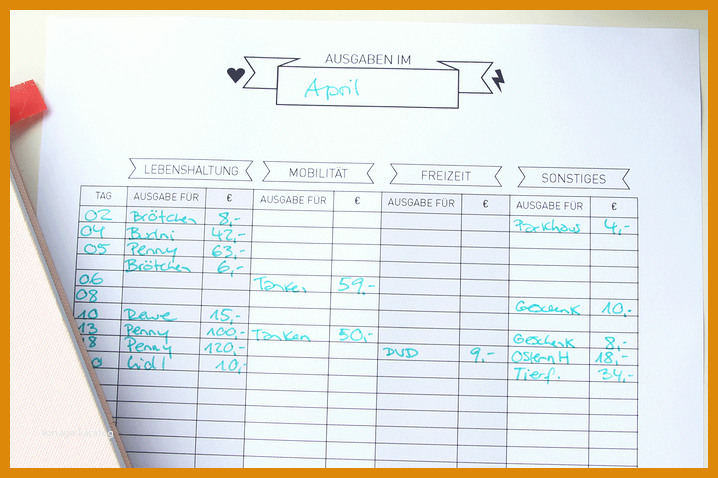 AUSGABEN IM
April
LEBENSHALTUNG MOBILITÄT FREIZEIT SONSTIGES
TAG AUSGABE FÜR € AUSGABE FÜR € AUSGABE FÜR € AUSGABE FÜR €
02 Brötchen 8,- Parkhaus 4,-
04 Budni 42,-
05 Penny 63,-
Brötchen 6,-
06 Tanken 59,-
08 Geschenk 10,-
10 Rewe 15,-
13 Penny 100,- Tanken 50,- Geschenk 8,-
8 Penny 120,- DVD 9,- Ostern H 18,-
0 Lidl 10,- Tierf. 34,-